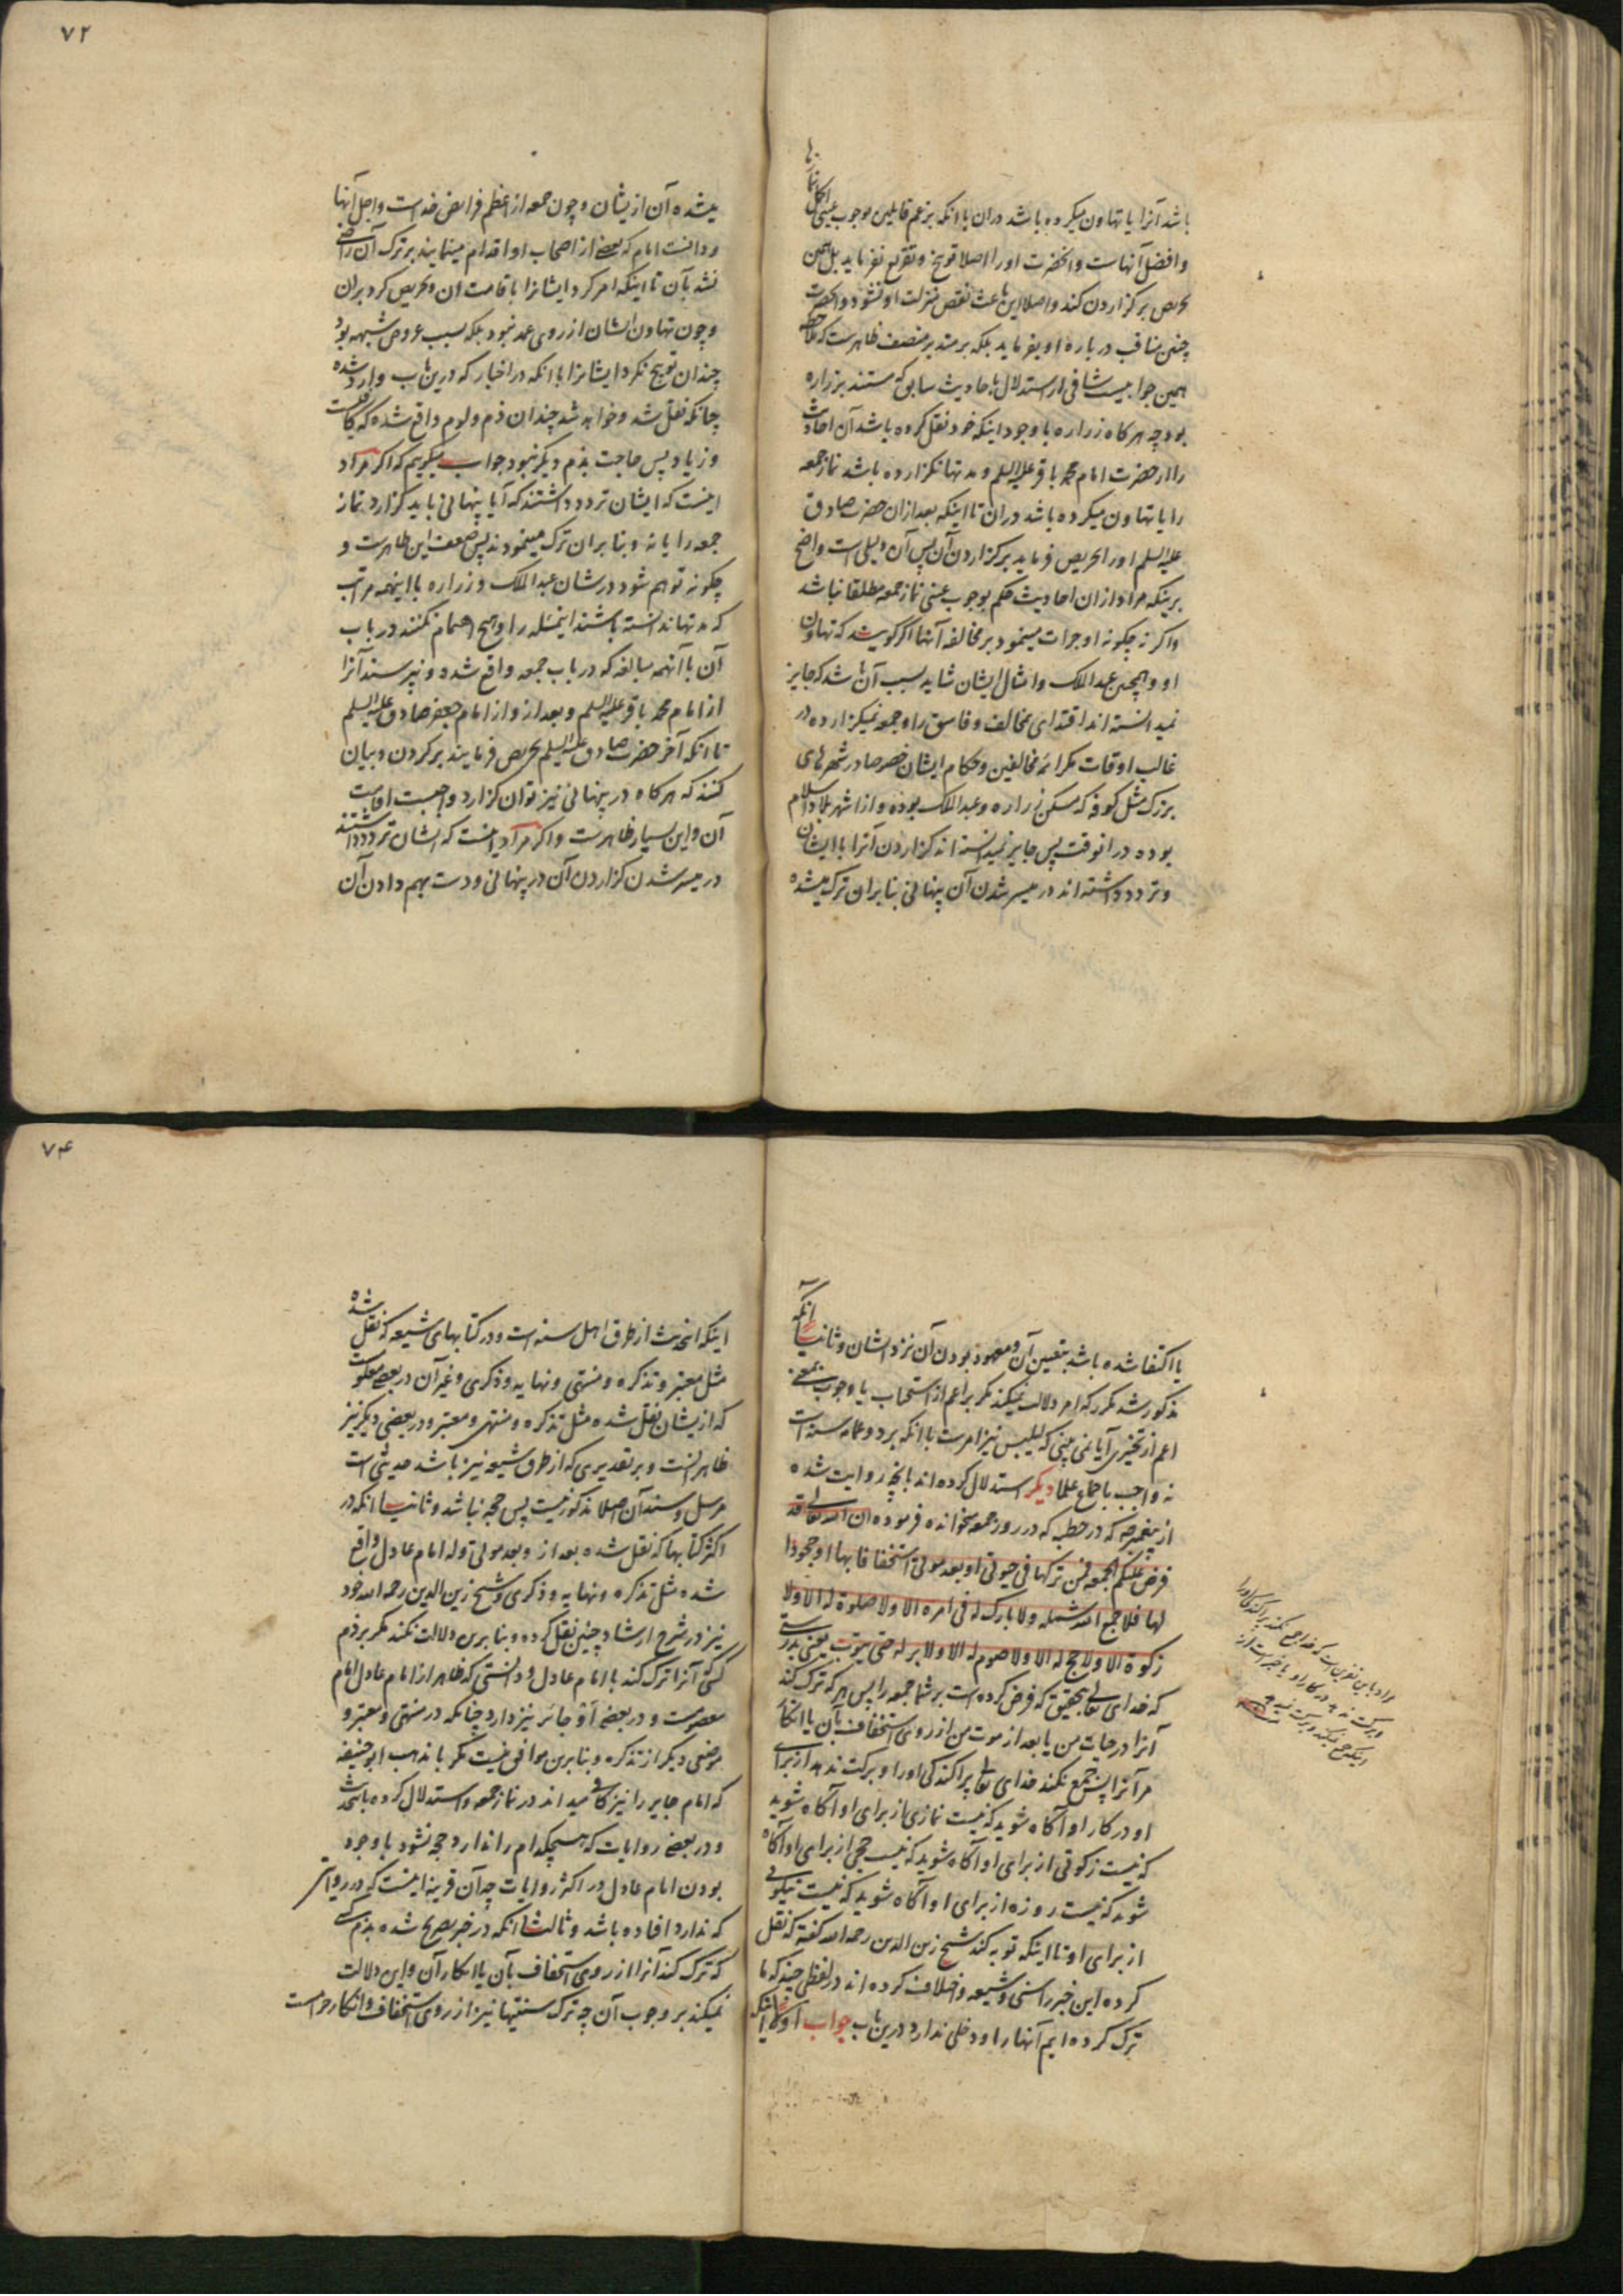 باشد آنرا یا تهاون میکرده باشد دران با آنکه بزعم قایلین بوجوب عینی اکمل نمازها
و افضل آنهاست و آنحضرت او را اصلا توبیخ و تقریع نفرماید بل همین
تحریص بر گزاردن کند و اصلا این باعث نقص منزلت او نشود و آنحضرت
چنین مناقب درباره او بفرماید بلکه بر متدبر منصف ظاهرست که ملاحظه
همین جوابیست شافی از استدلال باحادیث سابق که مستند بزراره
بود چه هرکاه زراره با وجود اینکه خود نقل کرده باشد آن احادیث
را از حضرت امام محمد باقر علیه السلم و مدتها نکزارده باشد نماز جمعه
را یا تهاون میکرده باشد دران تا اینکه بعد ازان حضرت صادق
علیه السلم او را تحریص فرماید بر کزاردن آن پس آن دلیلی است واضح
برینکه مراد ازان احادیث حکم بوجوب عینی نماز جمعه مطلقا نباشد
و اکر نه چکونه او جرات مینمود بر مخالفه آنها اکر کویند که تهاون
او و همچنین عبدالملک و امثال ایشان شاید بسبب آن باشد که جایز
نمیدانسته اند اقتدای مخالف و فاسق را و جمعه نمیکزارده در
غالب اوقات مکر ائمه مخالفین و حکام ایشان خصوصا در شهرهای
بزرک مثل کوفه که مسکن زراره و عبدالملک بوده و از اشهر بلاد اسلام
بوده در انوقت پس جایز نمیدانسته اند کزاردن آنرا با ایشان
و تردد داشته اند در میسر شدن آن پنهانی بنابران ترک میشده
۷۲
میشده آن ازیشان و چون جمعه از اعظم فرایض خداست و اجل آنها
و دانست امام که بعضی از اصحاب او اقدام مینمایند بر ترک آن راضی
نشد بآن تا اینکه امر کرد ایشانرا باقامت آن و تحریص کرد بران
و چون تهاون ایشان از روی عمد نبود بلکه بسبب عروض شبهه بود
چندان توبیخ نکرد ایشانرا با آنکه در اخبار که درین باب وارد شده
چنانکه نقل شد و خواهد شد چندان ذم و لوم واقع شده که کافیست
و زیاد پس حاجت بذم دیکر نبود جواب میکوییم که اکر مراد
اینست که ایشان تردد داشتند که آیا پنهانی باید کزارد نماز
جمعه را یا نه و بنابران ترک مینمودند پس ضعف این ظاهرست و
چکونه توهم شود در شان عبدالملک و زراره با اینهمه مراتب
که مدتها ندانسته باشند اینمسئله را و هیچ اهتمام نکنند در باب
آن با آنهمه مبالغه که در باب جمعه واقع شده و نپرسند آنرا
از امام محمد باقر علیه السلم و بعد ازو از امام جعفر صادق علیه السلم
تا آنکه آخر حضرت صادق علیه السلم تحریص فرمایند بر کردن و بیان
کنند که هرکاه در پنهانی نیز توان کزارد واجبست اقامت
آن و این بسیار ظاهرست و اکر مراد اینست که ایشان تردد داشتند
در میسر شدن کزاردن آن در پنهانی و دست بهم دادن آن
یا اکتفا شده باشد بتعیین آن و معهود بودن آن نزد ایشان و ثانیا آنکه
مذکور شد مکرر که امر دلالت نمیکند مکر بر اعم از استحباب یا وجوب بمعنی
اعم از تخییری آیا نمی بینی که لیلبس نیز امرست با آنکه برد و عمامه سنه است
نه واجب باجماع علما دیکر استدلال کرده اند بآنچه روایت شده
از پیغمبر که در خطبه که در روز جمعه میخوانده فرموده ان الله تعالی قد
فرض علیکم الجمعه فمن ترکها فی حیوتی او بعد موتی استخفافا بها او جحودا
لها فلا جمع الله شمله ولا بارک له فی امره الا ولا صلوة له الا ولا
زکوة الا ولا حج له الا ولا صوم له الا ولا بر له حتی یتوب یعنی بدرستی
که خدای تعالی بتحقیق که فرض کرده است بر شما جمعه را پس هر که ترک کند
آنرا در حیات من یا بعد از موت من از روی استخفاف بآن یا انکار
مر آنرا پس جمع نکند خدای تعالی پراکندکی او را و برکت ندهد از برای
او در کار او آکاه شوید که نیست نمازی از برای او آکاه شوید
که نیست زکوتی از برای او آکاه شوید که نیست حجی از برای او آکاه
شوید که نیست روزه از برای او آکاه شوید که نیست نیکویی
از برای او تا اینکه توبه کند شیخ زین الدین رحمه الله کفته که نقل
کرده این خبر را سنی و شیعه و اختلاف کرده اند در لفظی چند که ما
ترک کرده ایم آنها را و دخلی ندارد درین باب جواب اولا اینکه
۷۴
اینکه اینحدیث از طرق اهل سنه است و در کتابهای شیعه که نقل شده
مثل معتبر و تذکره و منتهی و نهایه و ذکری و غیر آن در بعضی معلومست
که ازیشان نقل شده مثل تذکره و منتهی و معتبر و در بعضی دیکر نیز
ظاهر اینست و بر تقدیری که از طرق شیعه نیز باشد حدیثی است
مرسل و سند آن اصلا مذکور نیست پس حجه نباشد و ثانیا آنکه در
اکثر کتابها که نقل شده بعد از و بعد موتی و له امام عادل واقع
شده مثل تذکره و نهایه و ذکری و شیخ زین الدین رحمه الله خود
نیز در شرح ارشاد چنین نقل کرده و بنابرین دلالت نکند مکر بر ذم
کسی که آنرا ترک کند با امام عادل و دانستی که ظاهر از امام عادل امام
معصومست و در بعضی او جائر نیز دارد چنانکه در منتهی و معتبر و
موضعی دیکر از تذکره و بنابرین موافق نیست مکر با مذهب ابوحنیفه
که امام جایر را نیز کافی میداند در نماز جمعه و استدلال کرده باینحدیث
و در بعضی روایات که هیچکدام را ندارد حجه نشود با وجود
بودن امام عادل در اکثر روایات چه آن قرینه اینست که در روایتی
که ندارد افتاده باشد و ثالثا آنکه در خبر تصریح شده بذم کسی
که ترک کند آنرا از روی استخفاف بآن یا انکار آن و این دلالت
نمیکند بر وجوب آن چه ترک سنتیها نیز از روی استخفاف و انکار حرامست